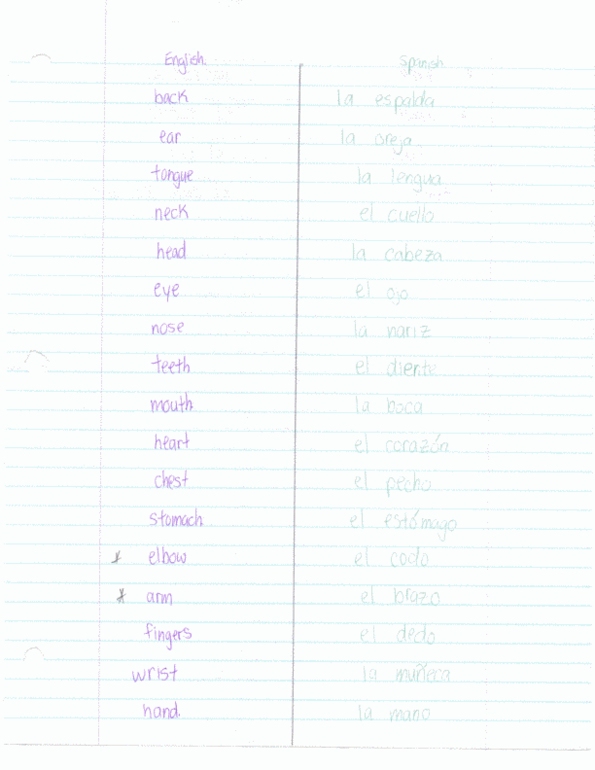 English Spanish
back la espalda
ear la oreja
tongue la lengua
neck el cuello
head la cabeza
eye el ojo
nose la nariz
teeth el diente
mouth la boca
heart el corazón
chest el pecho
stomach el estómago
* elbow el codo
* arm el brazo
fingers el dedo
wrist la muñeca
hand la mano